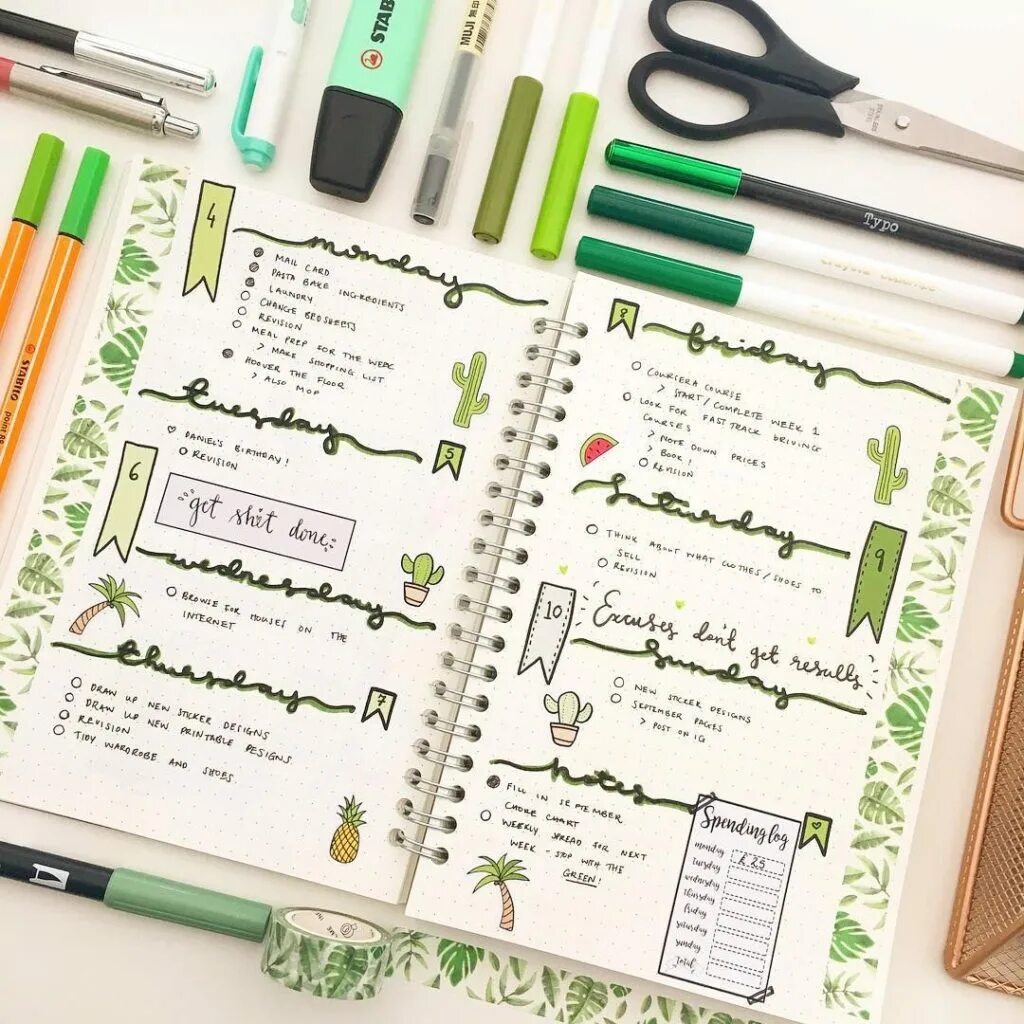 STAB
MUJI 無印
STAINLESS
Typo
STABILO
point 88
4
monday
MAIL CARD
PASTA BAKE INGREDIENTS
LAUNDRY
CHANGE BEDSHEETS
REVISION
MEAL PREP FOR THE WEEK
> MAKE SHOPPING LIST
HOOVER THE FLOOR
> ALSO MOP
tuesday
5
DANIEL'S BIRTHDAY!
REVISION
6
get shit done
wednesday
BROWSE FOR HOUSES ON THE
INTERNET
thursday
7
DRAW UP NEW STICKER DESIGNS
DRAW UP NEW PRINTABLE DESIGNS.
REVISION
TIDY WARDROBE AND SHOES.
8
friday
COURSERA COURSE
> START/COMPLETE WEEK 1
LOOK FOR FAST TRACK DRIVING
COURSES
> NOTE DOWN PRICES
> BOOK!
REVISION
saturday
9
THINK ABOUT WHAT CLOTHES/SHOES TO
SELL
REVISION
10
Excuses don't get results
sunday
NEW STICKER DESIGNS
SEPTEMBER PAGES
> POST ON IG
notes
FILL IN SEPTEMBER
CHORE CHART
WEEKLY SPREAD FOR NEXT
WEEK - STOP WITH THE
GREEN!
Spending log
monday £25
tuesday
wednesday
thursday
friday
saturday
sunday
total
A